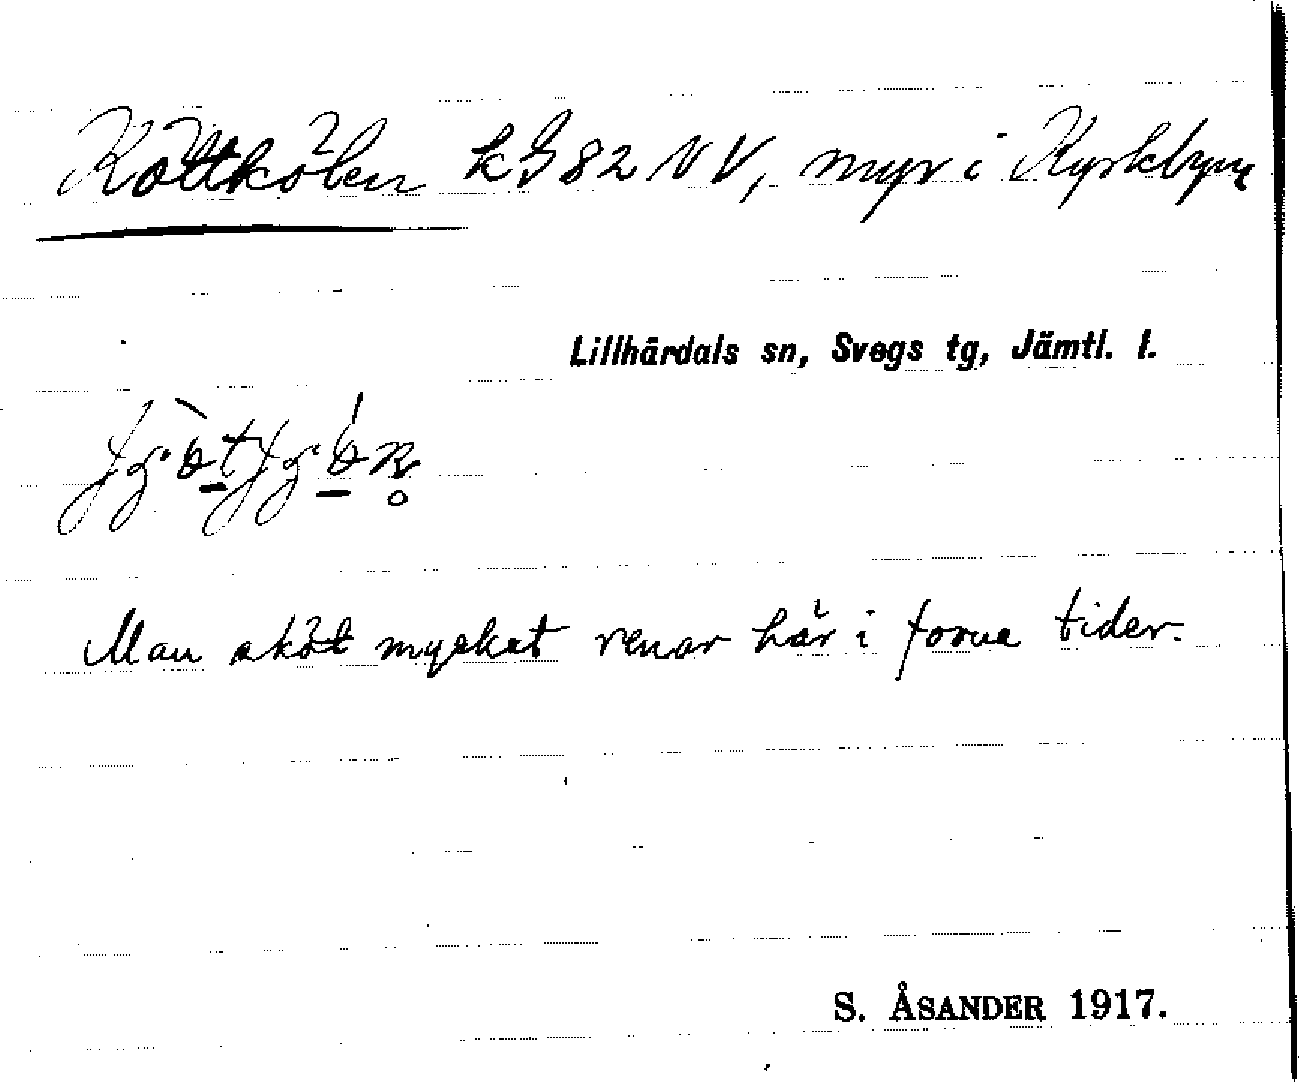 Köttkölen k Z 82 NV, myr i Kyrkbyn
Lillhärdals sn, Svegs tg, Jämtl. l.
Man sköt mycket renar här i forna tider.
S. ÅSANDER 1917.